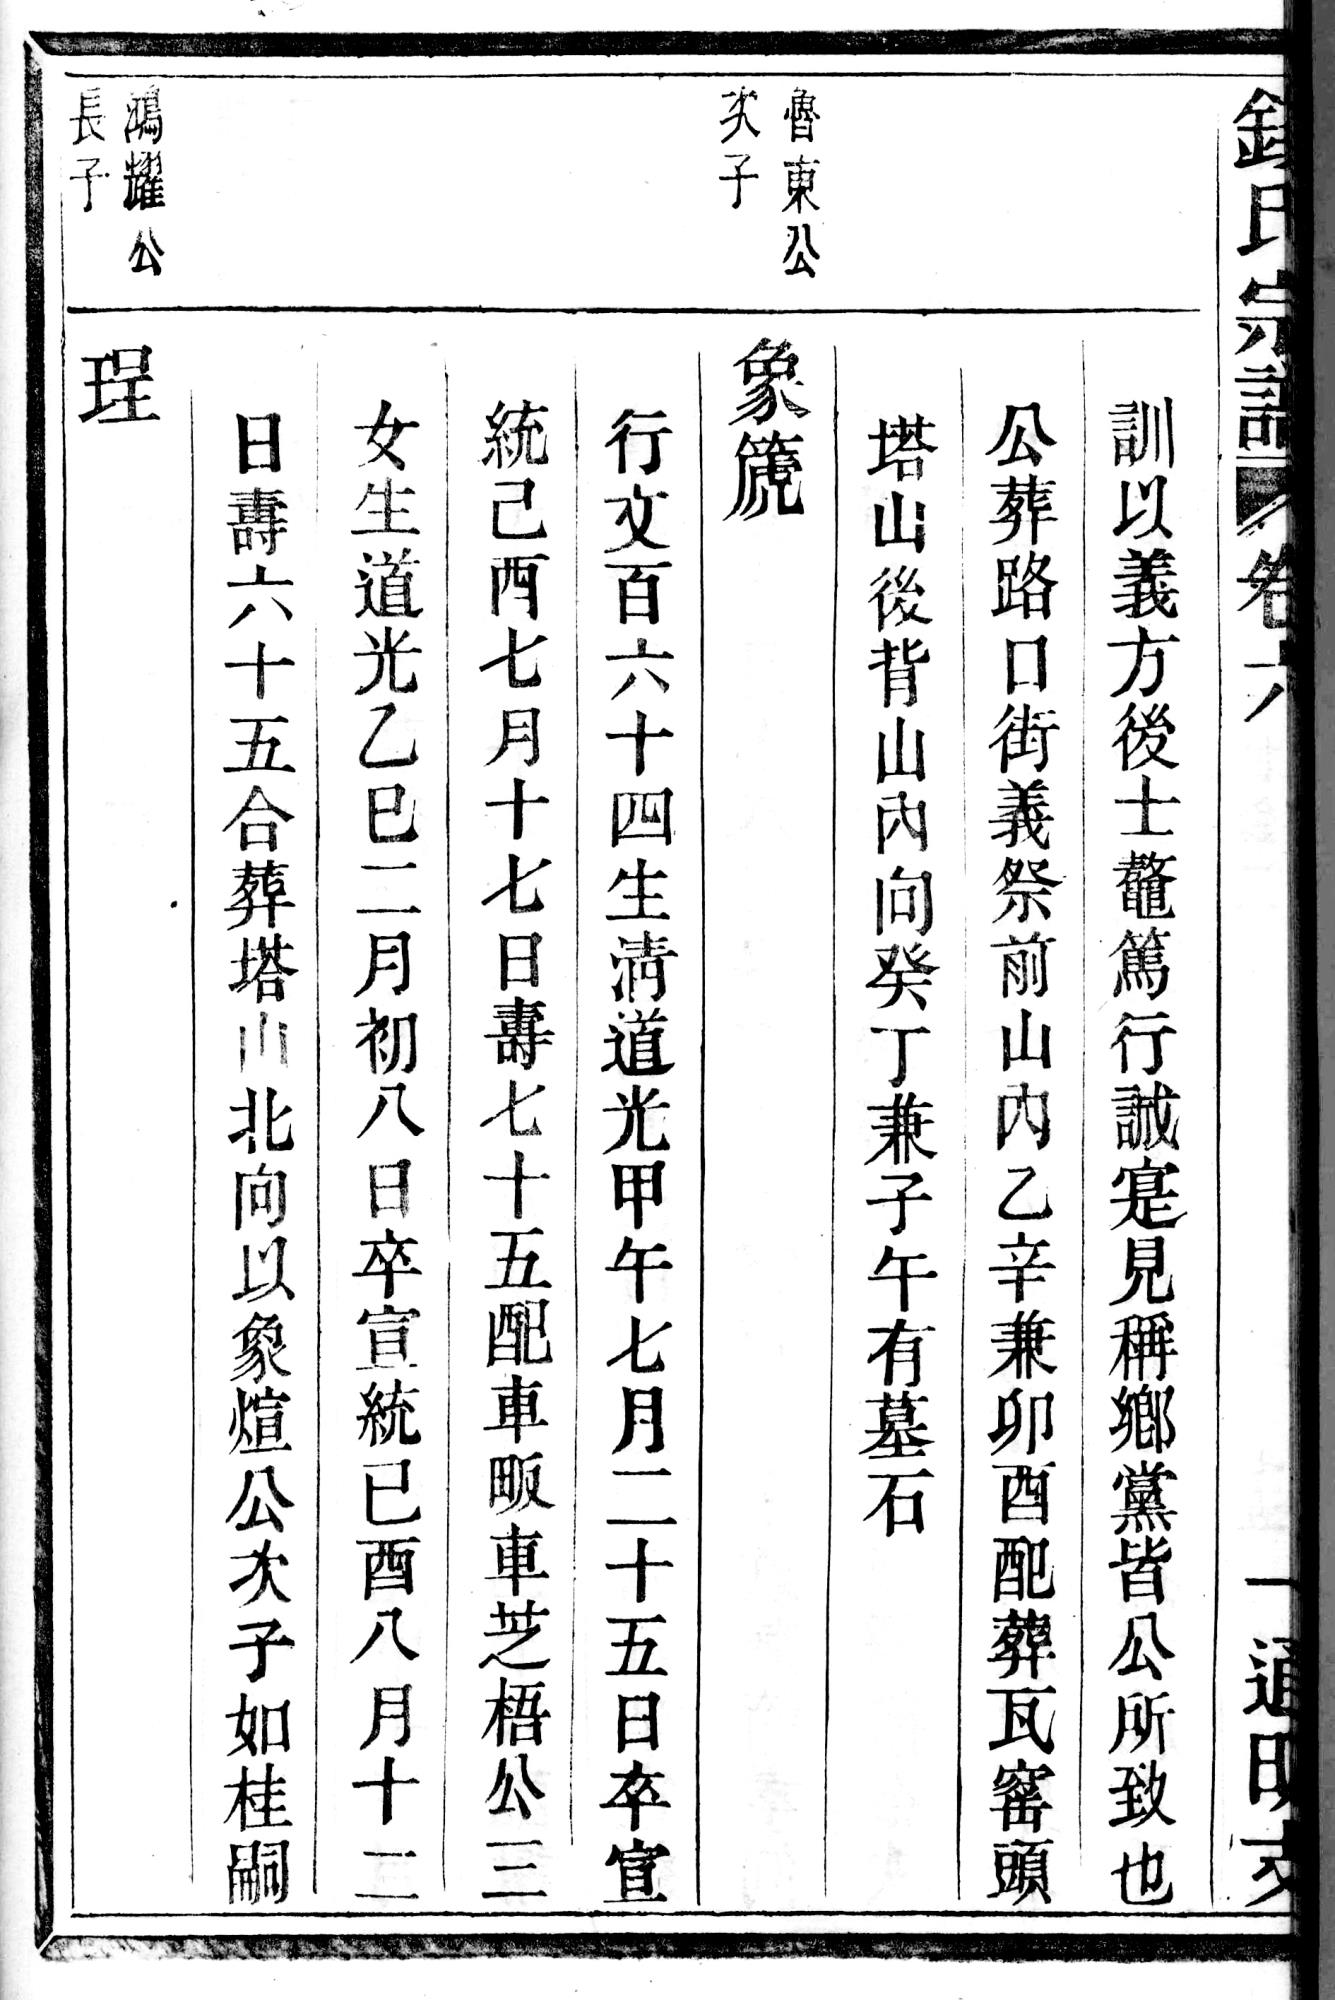 氏宗譜 卷六 一 通明支
訓以義方後士鼇篤行誠寔見稱鄉黨皆公所致也
公葬路口街義祭前山內乙辛兼卯酉配葬瓦窰頭
塔山後背山內向癸丁兼子午有墓石
魯東公
次子
象篪
行文百六十四生清道光甲午七月二十五日卒宣
統己酉七月十七日壽七十五配車畈車芝梧公三
女生道光乙巳二月初八日卒宣統已酉八月十二
日壽六十五合葬塔山北向以象煊公次子如桂嗣
鴻耀公
長子
珵